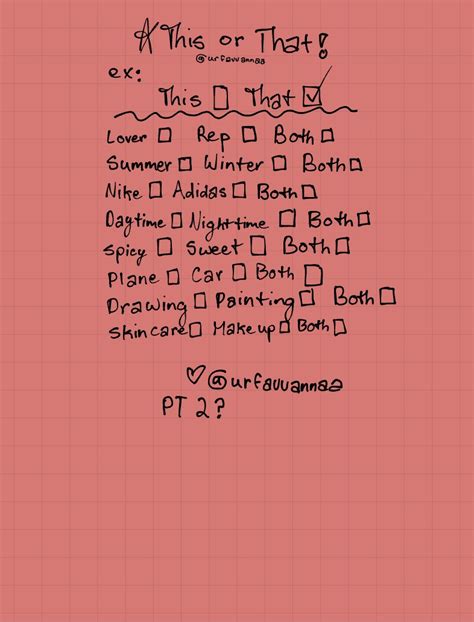 A This or That!
@urfavvannaa
ex:
This ☐ That ☑
Lover ☐ Rep ☐ Both ☐
Summer ☐ Winter ☐ Both ☐
Nike ☐ Adidas ☐ Both ☐
Daytime ☐ Nighttime ☐ Both ☐
Spicy ☐ Sweet ☐ Both ☐
Plane ☐ Car ☐ Both ☐
Drawing ☐ Painting ☐ Both ☐
Skincare ☐ Makeup ☐ Both ☐
♡@urfavvannaa
PT 2?